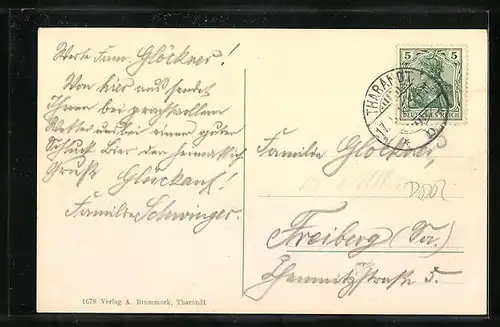 Werte Fam. Glöckner!
Von hier aus sendet
Ihnen bei prachtvollem
Wetter und bei einem guten
Schluck Bier den heimatlich.
Gruß Glückauf!
Familie Schwinger.
5 5
DEUTSCHES REICH
THARANDT
17.
Familie Glöckner,
Freiberg (Sa.)
Chemnitzstraße 5.
1678 Verlag A. Brummack, Tharandt